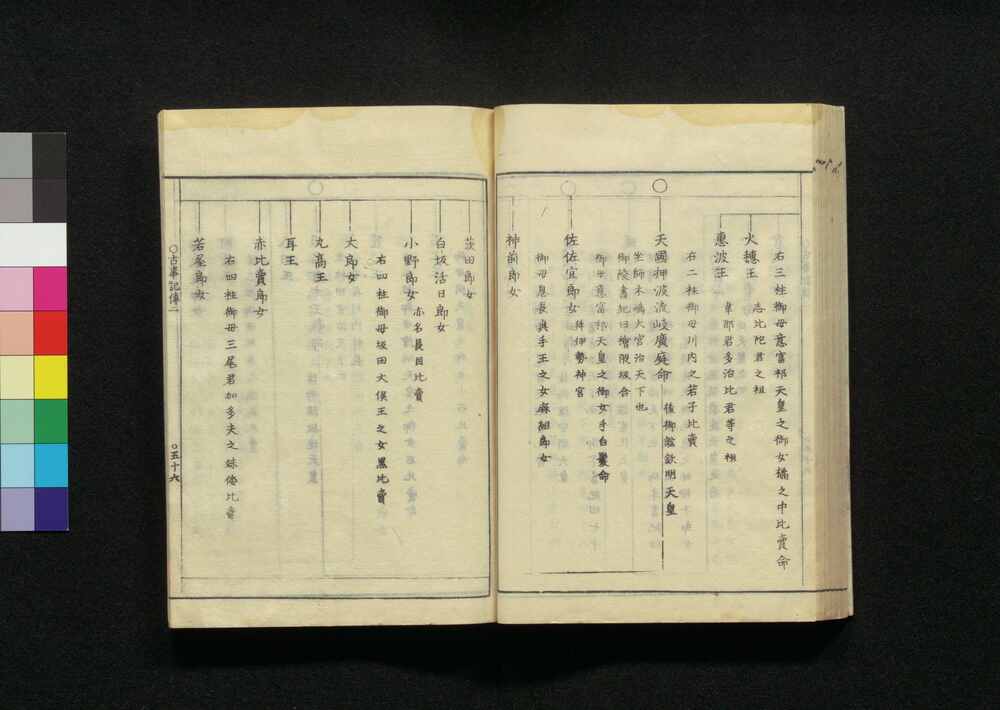 右三柱御母意富祁天皇之御女橘之中比賣命
火穗王
志比陀君之祖
惠波王
韋那君多治比君等之祖
右二柱御母川内之若子比賣
天國押波流岐廣庭命
後御謚欽明天皇
坐師木嶋大宮治天下也
御陵書紀曰檜隈坂合
御母意富祁天皇之御女手白髮命
佐佐宜郎女
拜伊勢神宮
御母息長真手王之女麻組郎女
神前郎女
茨田郎女
白坂活日郎女
小野郎女
亦名長目比賣
右四柱御母坂田大俣王之女黒比賣
大郎女
丸高王
耳王
赤比賣郎女
右四柱御母三尾君加多夫之妹倭比賣
若屋郎女
○古事記傳二
○五十六